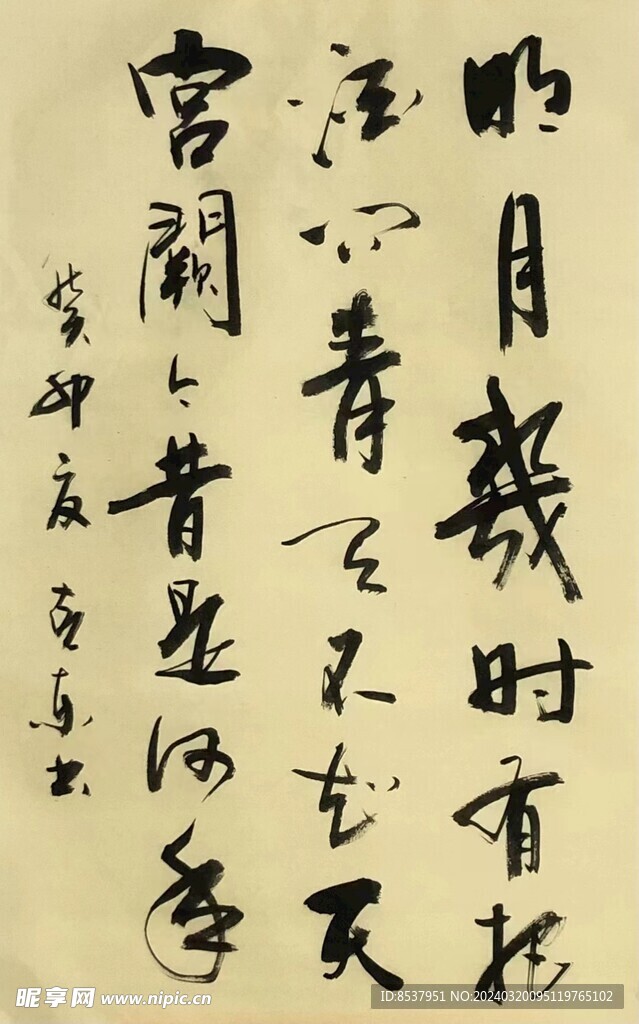 明月幾时有把
酒问青天不知天
宫阙今昔是何年
癸卯夏东书
昵享网 www.nipic.cn
ID:8537951 NO:20240320095119765102